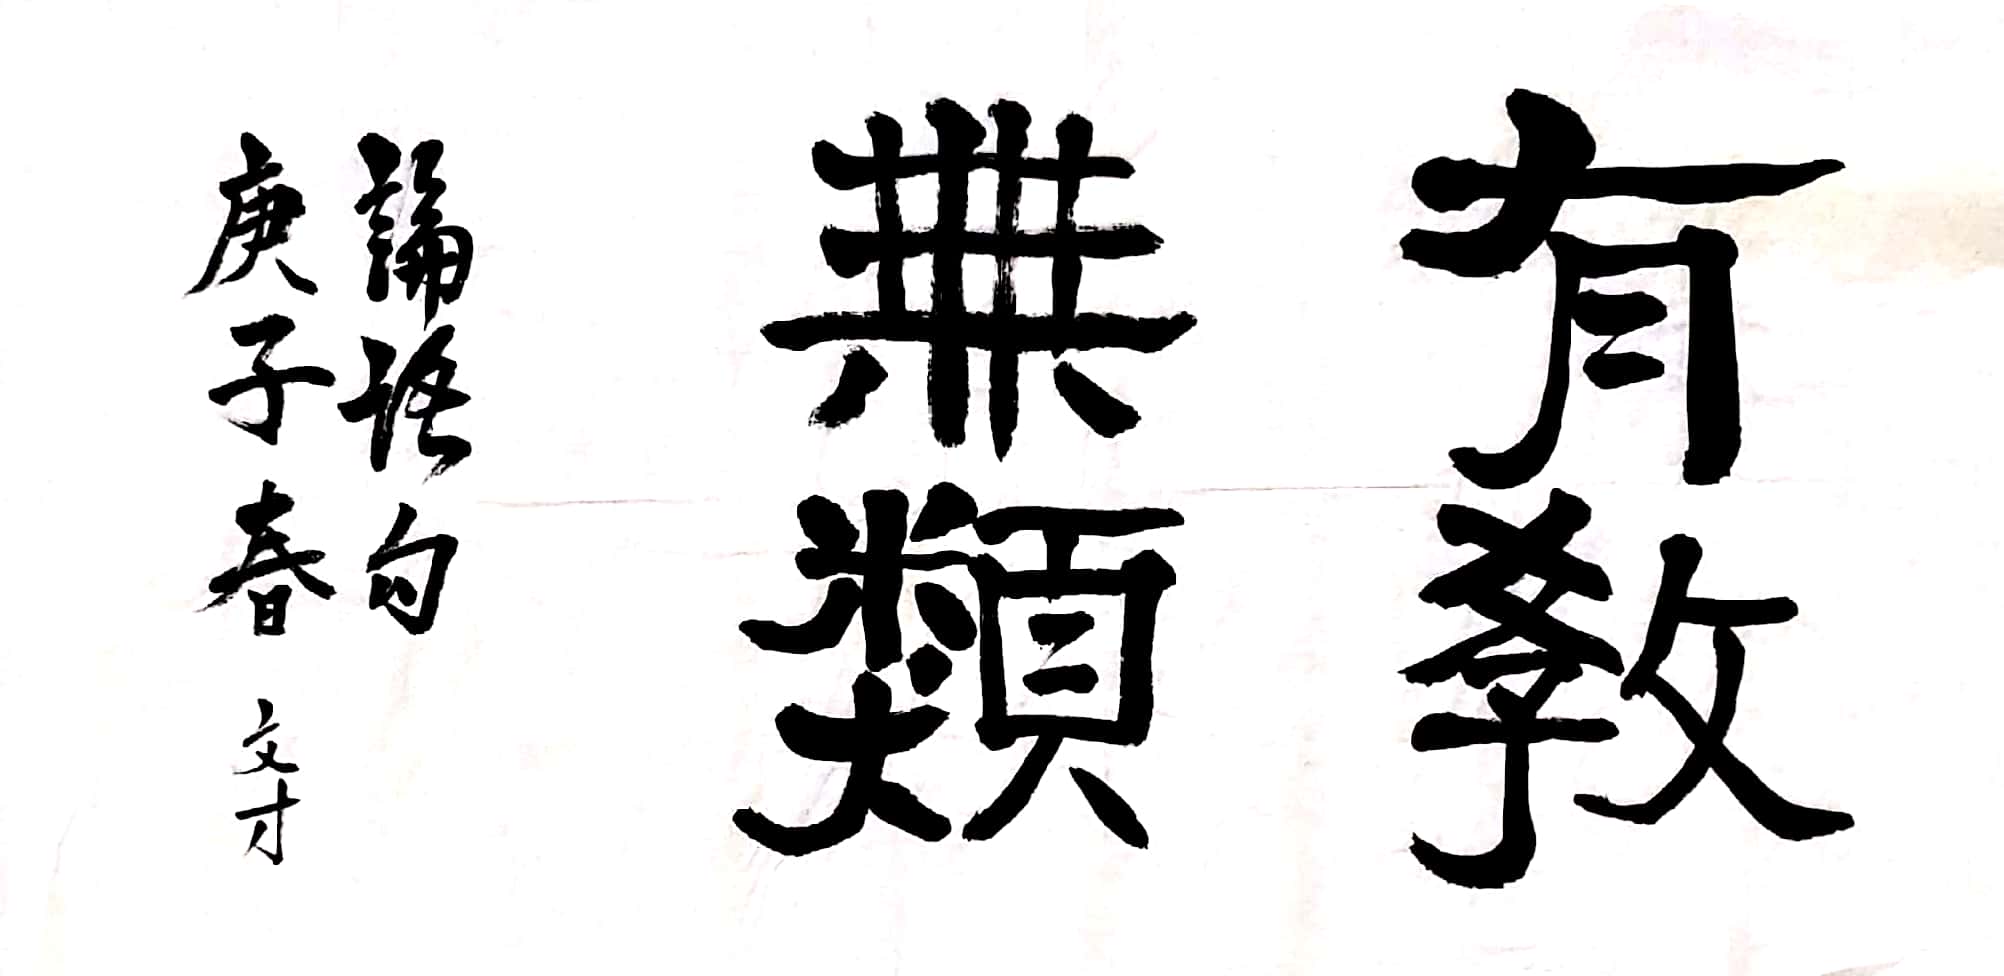 有教
無類
論語句
庚子春 文才